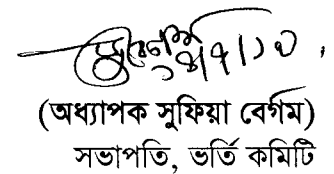 (অধ্যাপক সুফিয়া বেগম)
সভাপতি, ভর্তি কমিটি